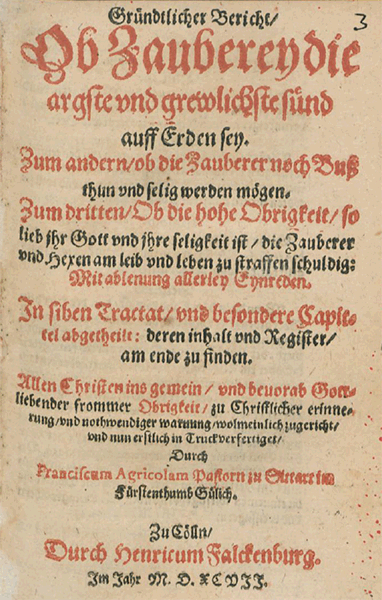 Gründtlicher Bericht/
3
Ob Zauberey die
argste vnd grewlichste sünd
auff Erden sey.
Zum andern/ob die Zauberer noch Buß
thun vnd selig werden mögen.
Zum dritten/Ob die hohe Obrigkeit/so
lieb jhr Gott vnd jhre seligkeit ist/die Zauberer
vnd Hexen am leib vnd leben zu straffen schuldig:
Mit ablenung allerley Eynreden.
In siben Tractat/vnd besondere Capit-
tel abgetheilt: deren inhalt vnd Register/
am ende zu finden.
Allen Christen ins gemein/vnd beuorab Gott-
liebender frommer Obrigkeit/zu Christlicher erinne-
rung/vnd nothwendiger warnung/wolmeinlich zugericht/
vnd nun erstlich in Truck verfertiget/
Durch
Franciscum Agricolam Pastorn zu Sittart im
Fürstenthumb Gülich.
Zu Cölln/
Durch Henricum Falckenburg.
Im Jahr M. D. XCVII.